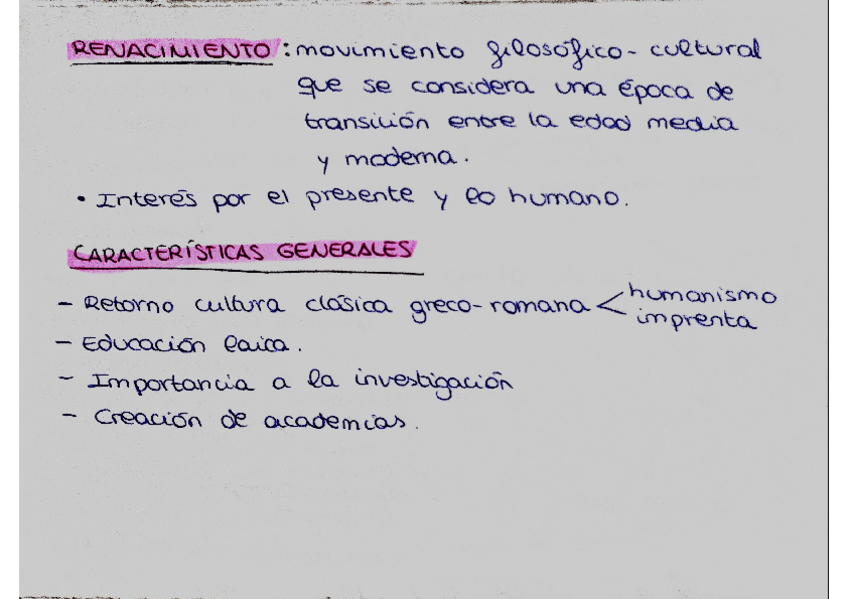 RENACIMIENTO : movimiento filosófico - cultural
que se considera una época de
transición entre la edad media
y moderna.
• Interés por el presente y lo humano.
CARACTERÍSTICAS GENERALES
- Retorno cultura clásica greco-romana < humanismo
imprenta
- Educación laica.
- Importancia a la investigación
- Creación de academias.